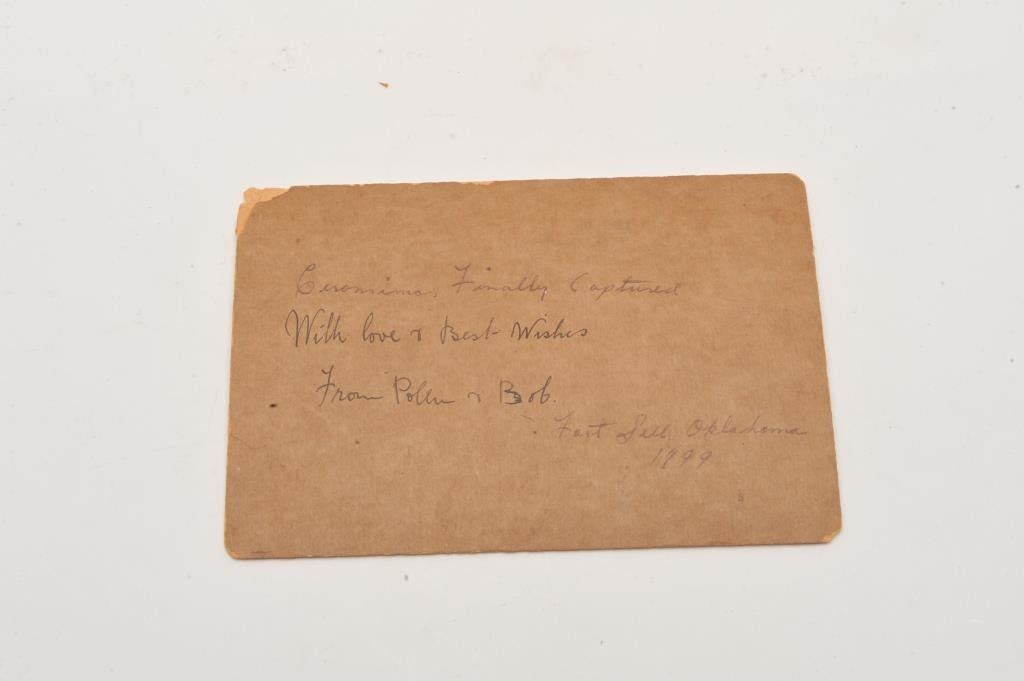 Geronimo, Finally Captured
With love & Best Wishes
From & Bob.
Fort Sill, Oklahoma
1899